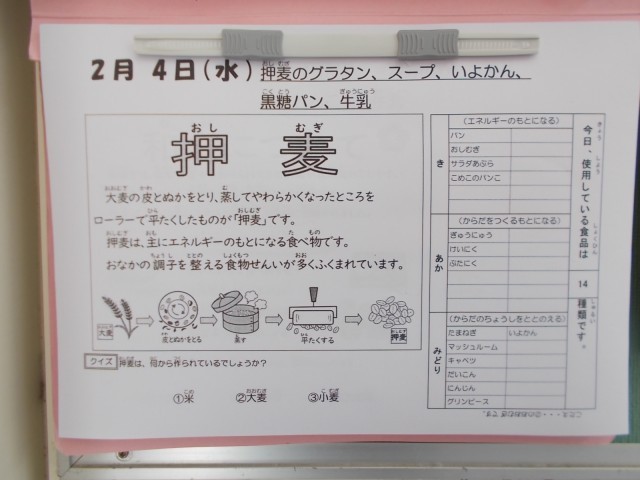 2月 4日(水) 押麦のグラタン、スープ、いよかん、
黒糖パン、牛乳
押 麦
大麦の皮とぬかをとり、蒸してやわらかくなったところを
ローラーで平たくしたものが「押麦」です。
押麦は、主にエネルギーのもとになる食べ物です。
おなかの調子を整える食物せんいが多くふくまれています。
大麦
皮とぬかをとる
蒸す
平たくする
押麦
クイズ 押麦は、何から作られているでしょうか?
①米 ②大麦 ③小麦
今日、使用している食品は
14
種類です。
き
(エネルギーのもとになる)
パン
おしむぎ
サラダあぶら
こめこのパンこ
あか
(からだをつくるもとになる)
ぎゅうにゅう
けいにく
ぶたにく
みどり
(からだのちょうしをととのえる)
たまねぎ いよかん
マッシュルーム
キャベツ
だいこん
にんじん
グリンピース
こたえ・・・②のおおむぎです。